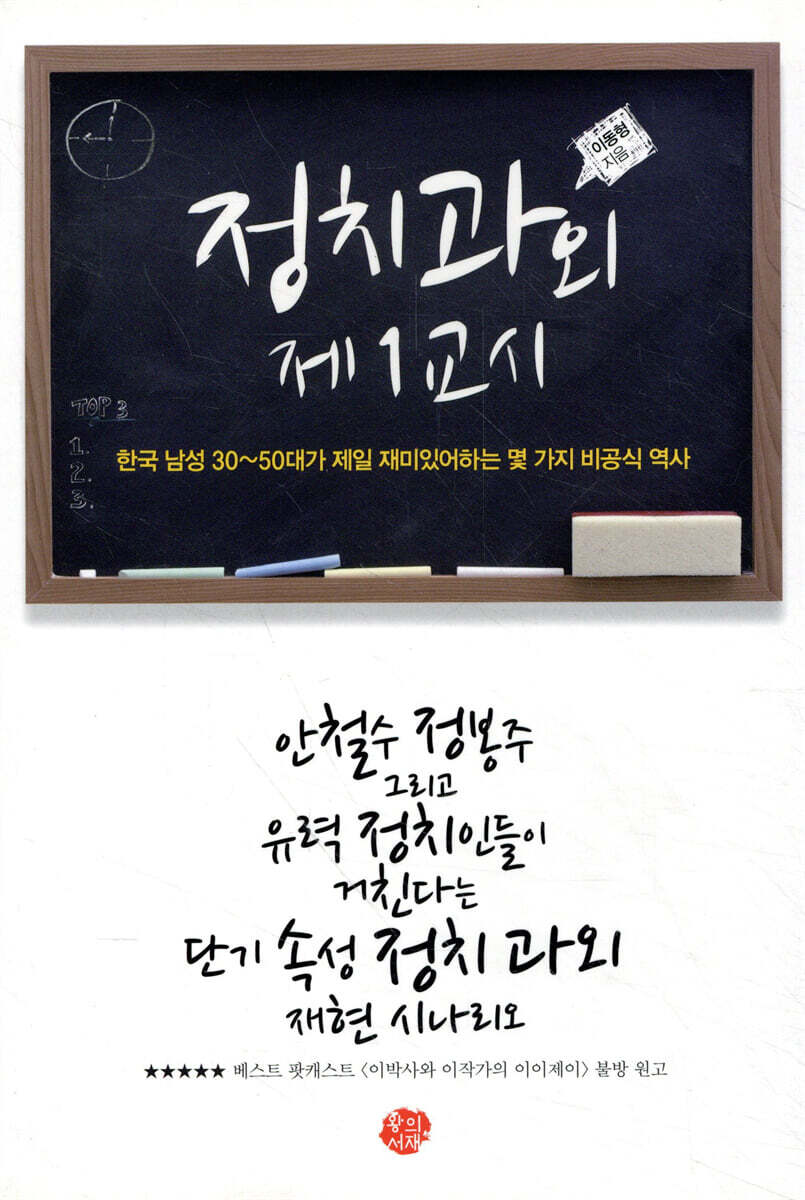 이동형
지음
정치과외
제1교시
TOP 3
1.
2.
3.
한국 남성 30~50대가 제일 재미있어하는 몇 가지 비공식 역사
안철수 정봉주
그리고
유력 정치인들이
거친다는
단기 속성 정치 과외
재현 시나리오
★★★★★ 베스트 팟캐스트 〈이박사와 이작가의 이이제이〉 불방 원고
왕의
서재